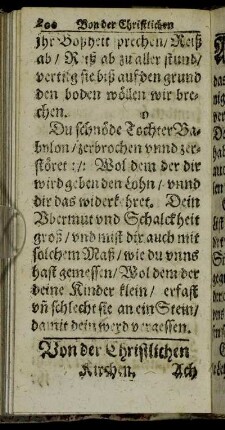 200 Von der Christlichen
jhr Boßheit sprechen / Reiß
ab / Reiß ab zu aller stund /
vertilg sie biß auff den grund
den boden wöllen wir bre-
chen.
Du schnöde Tochter Ba-
bylon / zerbrochen vnnd zer-
störet :/: Wol dem der dir
wird geben den Lohn / vnnd
dir das widerkehret. Dein
Vbermut vnd Schalckheit
groß / vnd mißt dir auch mit
solchem Maß / wie du vnns
hast gemessen / Wol dem der
deine Kinder klein / erfast
vñ schlecht sie an ein Stein /
damit dein werd vergessen.
Von der Christlichen
Kirchen. Ach